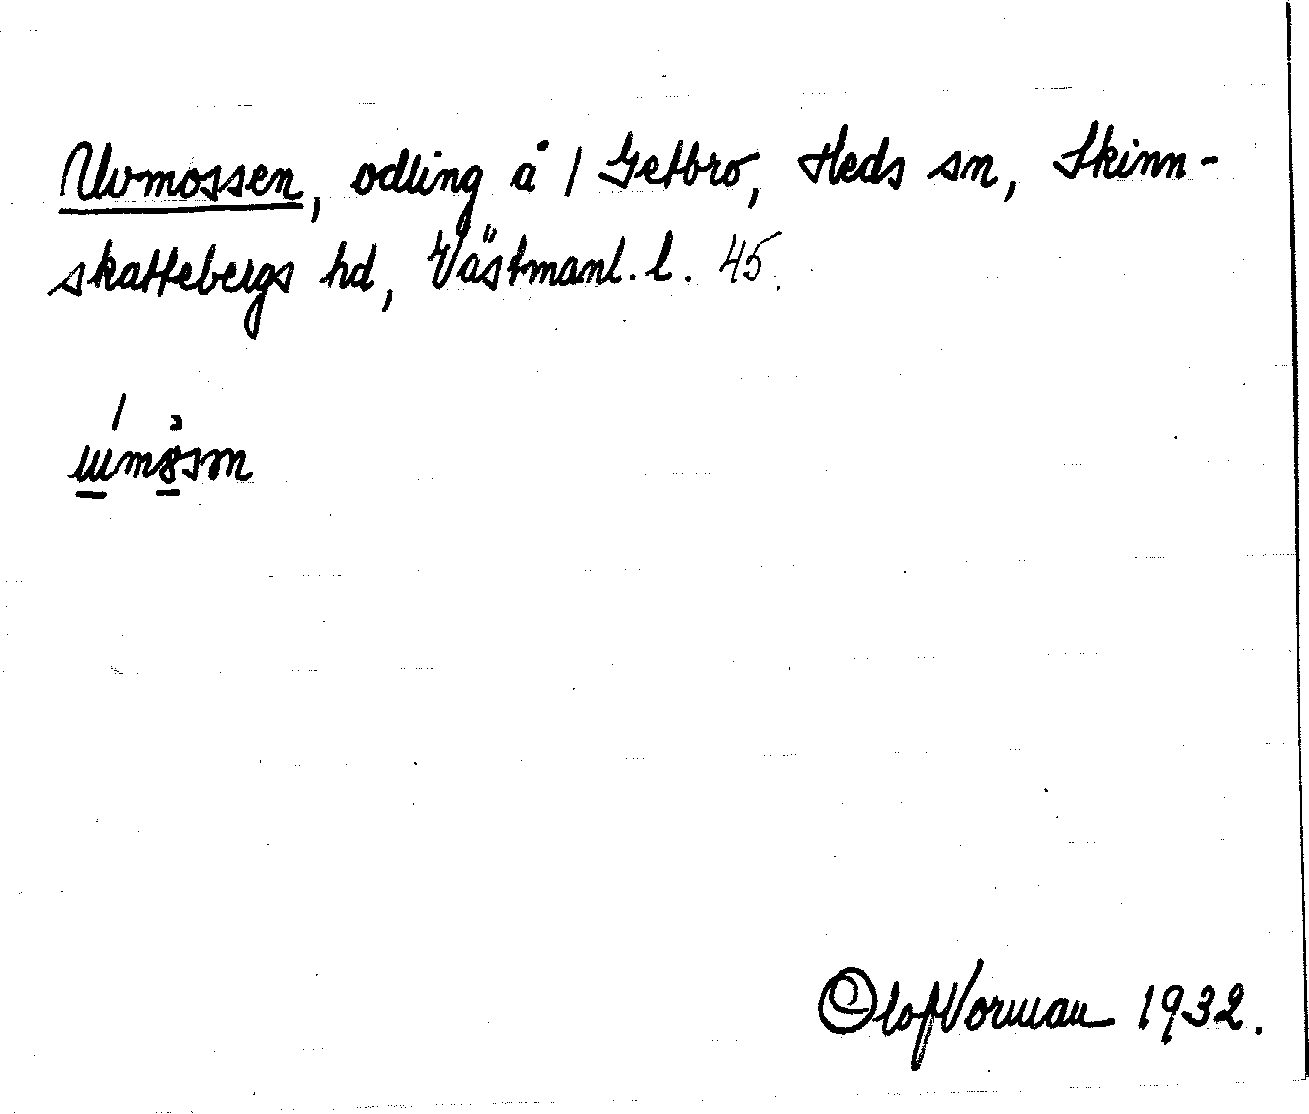 Uvmossen, odling å 1 Getbro, Heds sn, Skinn-
skattebergs hd, Västmanl. l. 45.
Olof Vorman 1932.